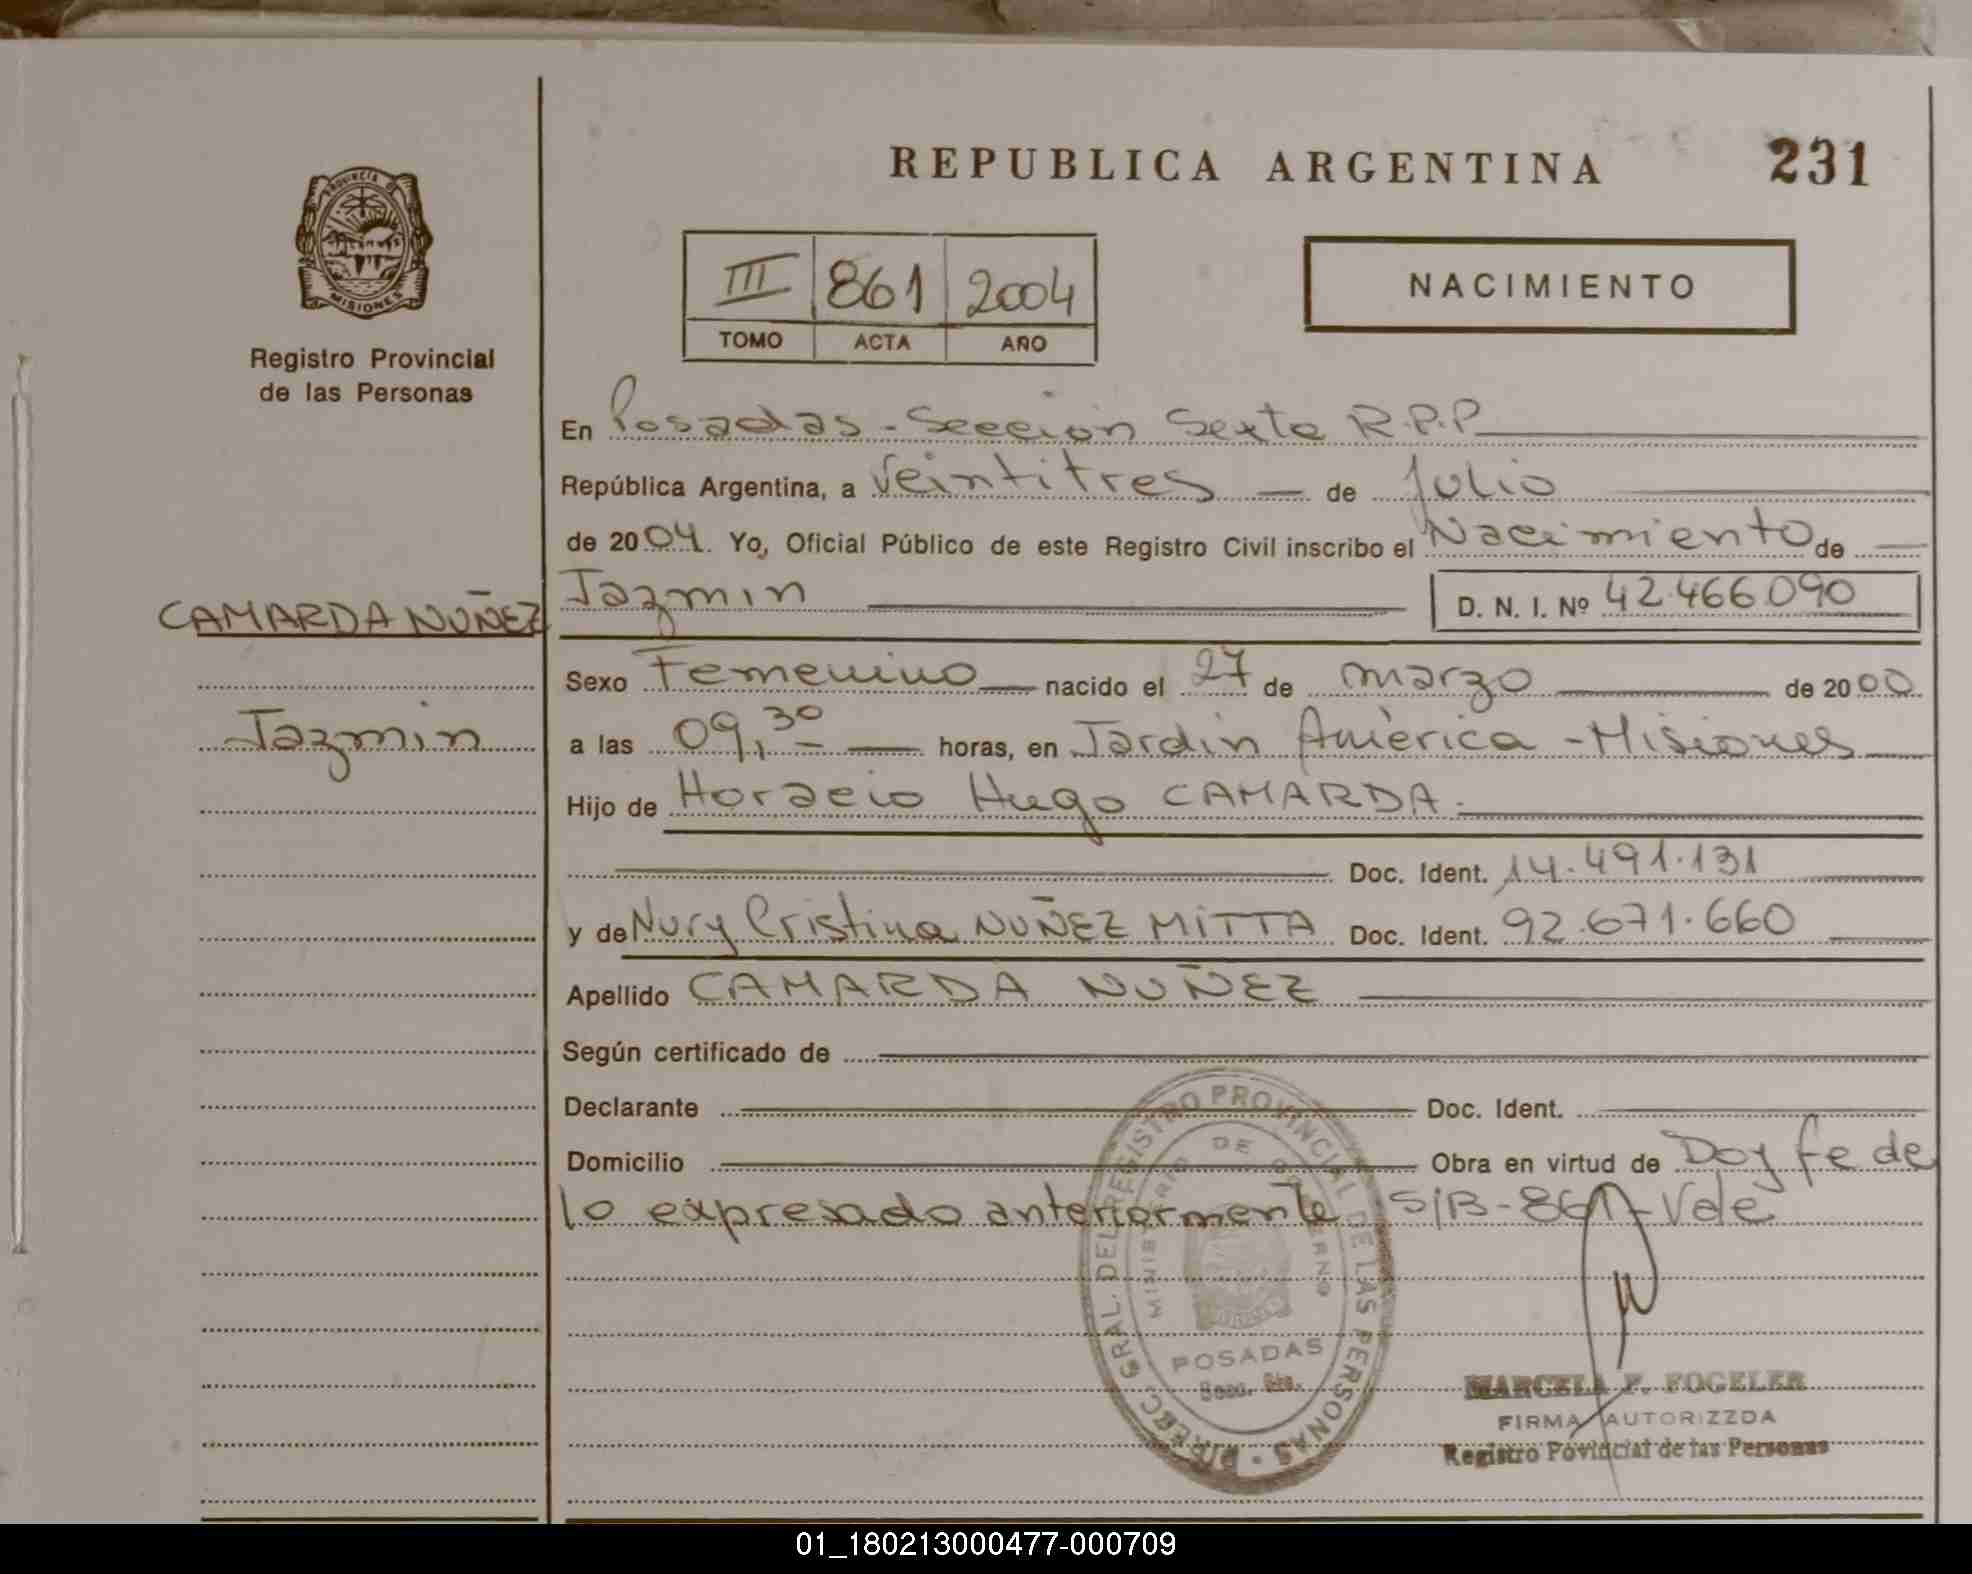 REPUBLICA ARGENTINA
231
PROVINCIA DE
MISIONES
Registro Provincial
de las Personas
III 861 2004
TOMO ACTA AÑO
NACIMIENTO
En Posadas - Sección Sexta R.P.P
República Argentina, a veintitres — de Julio
de 2004. Yo, Oficial Público de este Registro Civil inscribo el Nacimiento de
CAMARDA NUÑEZ
Jazmin
Jazmin
D. N. I. Nº 42.466.090
Sexo Femenino nacido el 27 de marzo de 2000
a las 09,30 horas, en Jardin América - Misiones
Hijo de Horacio Hugo CAMARDA.
Doc. Ident. 14.491.131
y de Nury Cristina NUÑEZ MITTA Doc. Ident. 92.671.660
Apellido CAMARDA NUÑEZ
Según certificado de
Declarante Doc. Ident.
Domicilio Obra en virtud de Doy fe de
lo expresado anteriormente S/B-861-Vale
DIRECC. GRAL. DEL REGISTRO PROVINCIAL DE LAS PERSONAS
MINISTERIO DE GOBIERNO
POSADAS
Secc. 6ta.
MARCELA F. FOGELER
FIRMA AUTORIZZDA
Registro Povincial de las Personas
01_180213000477-000709